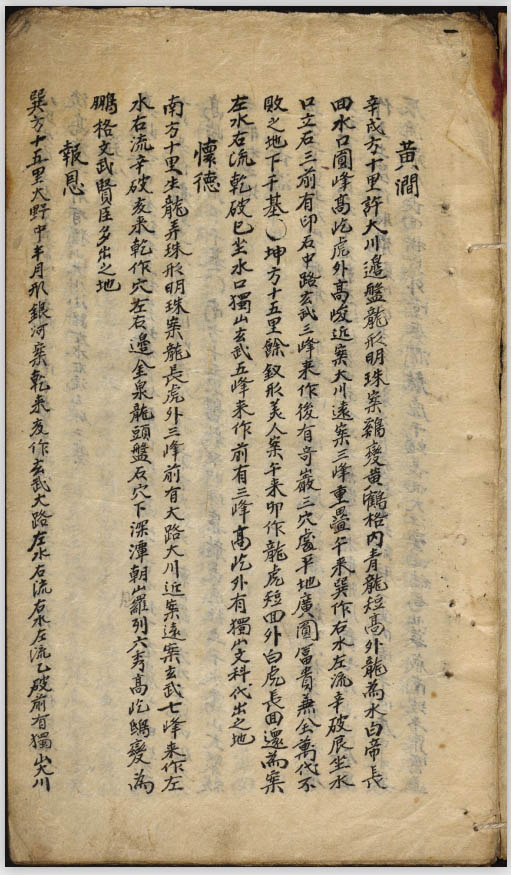 黃澗
辛戌方十里許大川邊盤龍形明珠案鷄變黃鶴格內青龍短高外龍爲水白帝長
回水口圓峰高屹虎外高峻近案大川遠案三峰重疊午來巽作右水左流辛破辰坐水
口立石三前有印石中路玄武三峰來作後有奇巖三穴處平地廣圓富貴兼全萬代不
敗之地下千基〇坤方十五里餘釵形美人案午來卯作龍虎短回外白虎長回還爲案
左水右流乾破巳坐水口獨山玄武五峰來作前有三峰高屹外有獨山文科代出之地
懷德
南方十里生龍弄珠形明珠案龍長虎外三峰前有大路大川近案遠案玄武七峰來作左
水右流辛破亥來乾作穴左右邊金泉龍頭盤石穴下深潭朝山羅列六秀高屹鵾變爲
鵬格文武賢臣多出之地
報恩
巽方十五里大野中半月形銀河案乾來亥作玄武大路左水右流右水左流乙破前有獨山大川